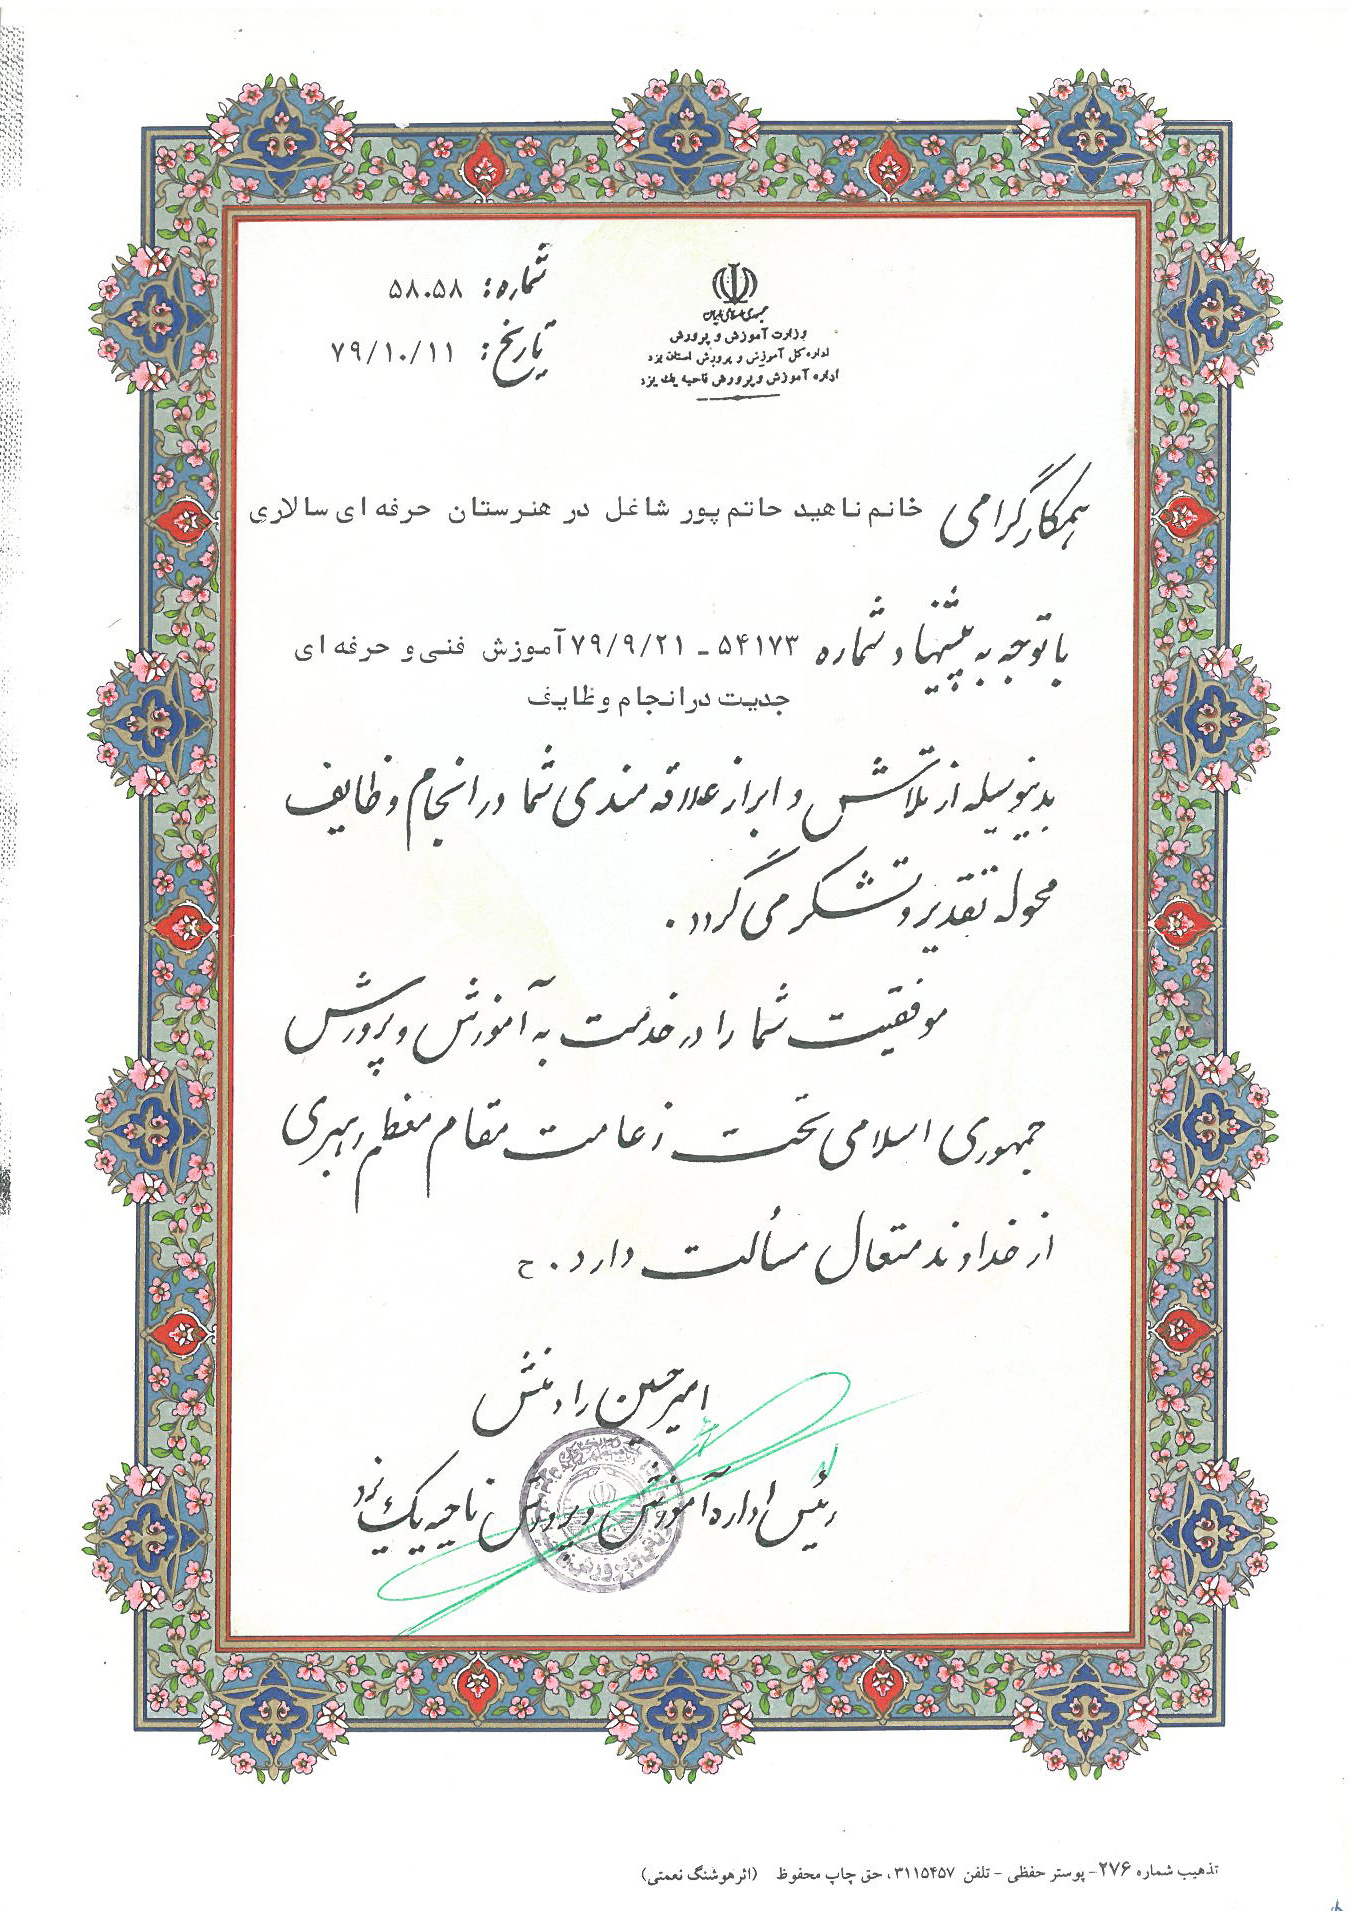 شماره: ۵۸۰۵۸
تاریخ: ۷۹/۱۰/۱۱
جمهوری اسلامی ایران
وزارت آموزش و پرورش
اداره کل آموزش و پرورش استان یزد
اداره آموزش و پرورش ناحیه یک یزد
همکار گرامی خانم ناهید حاتم پور شاغل در هنرستان حرفه ای سالاری
با توجه به پیشنهاد شماره ۵۴۱۷۳ - ۷۹/۹/۲۱ آموزش فنی و حرفه ای
جدیت در انجام وظایف
بدینوسیله از تلاش و ابراز علاقه مندی شما در انجام وظایف
محوله تقدیر و تشکر می گردد.
موفقیت شما را در خدمت به آموزش و پرورش
جمهوری اسلامی تحت زعامت مقام معظم رهبری
از خداوند متعال مسألت دارد. ح
امیرحسین رادمنش
رئیس اداره آموزش و پرورش ناحیه یک یزد
تذهیب شماره ۲۷۶- پوستر حفظی - تلفن ۳۱۱۵۴۵۷، حق چاپ محفوظ (اثر هوشنگ نعمتی)